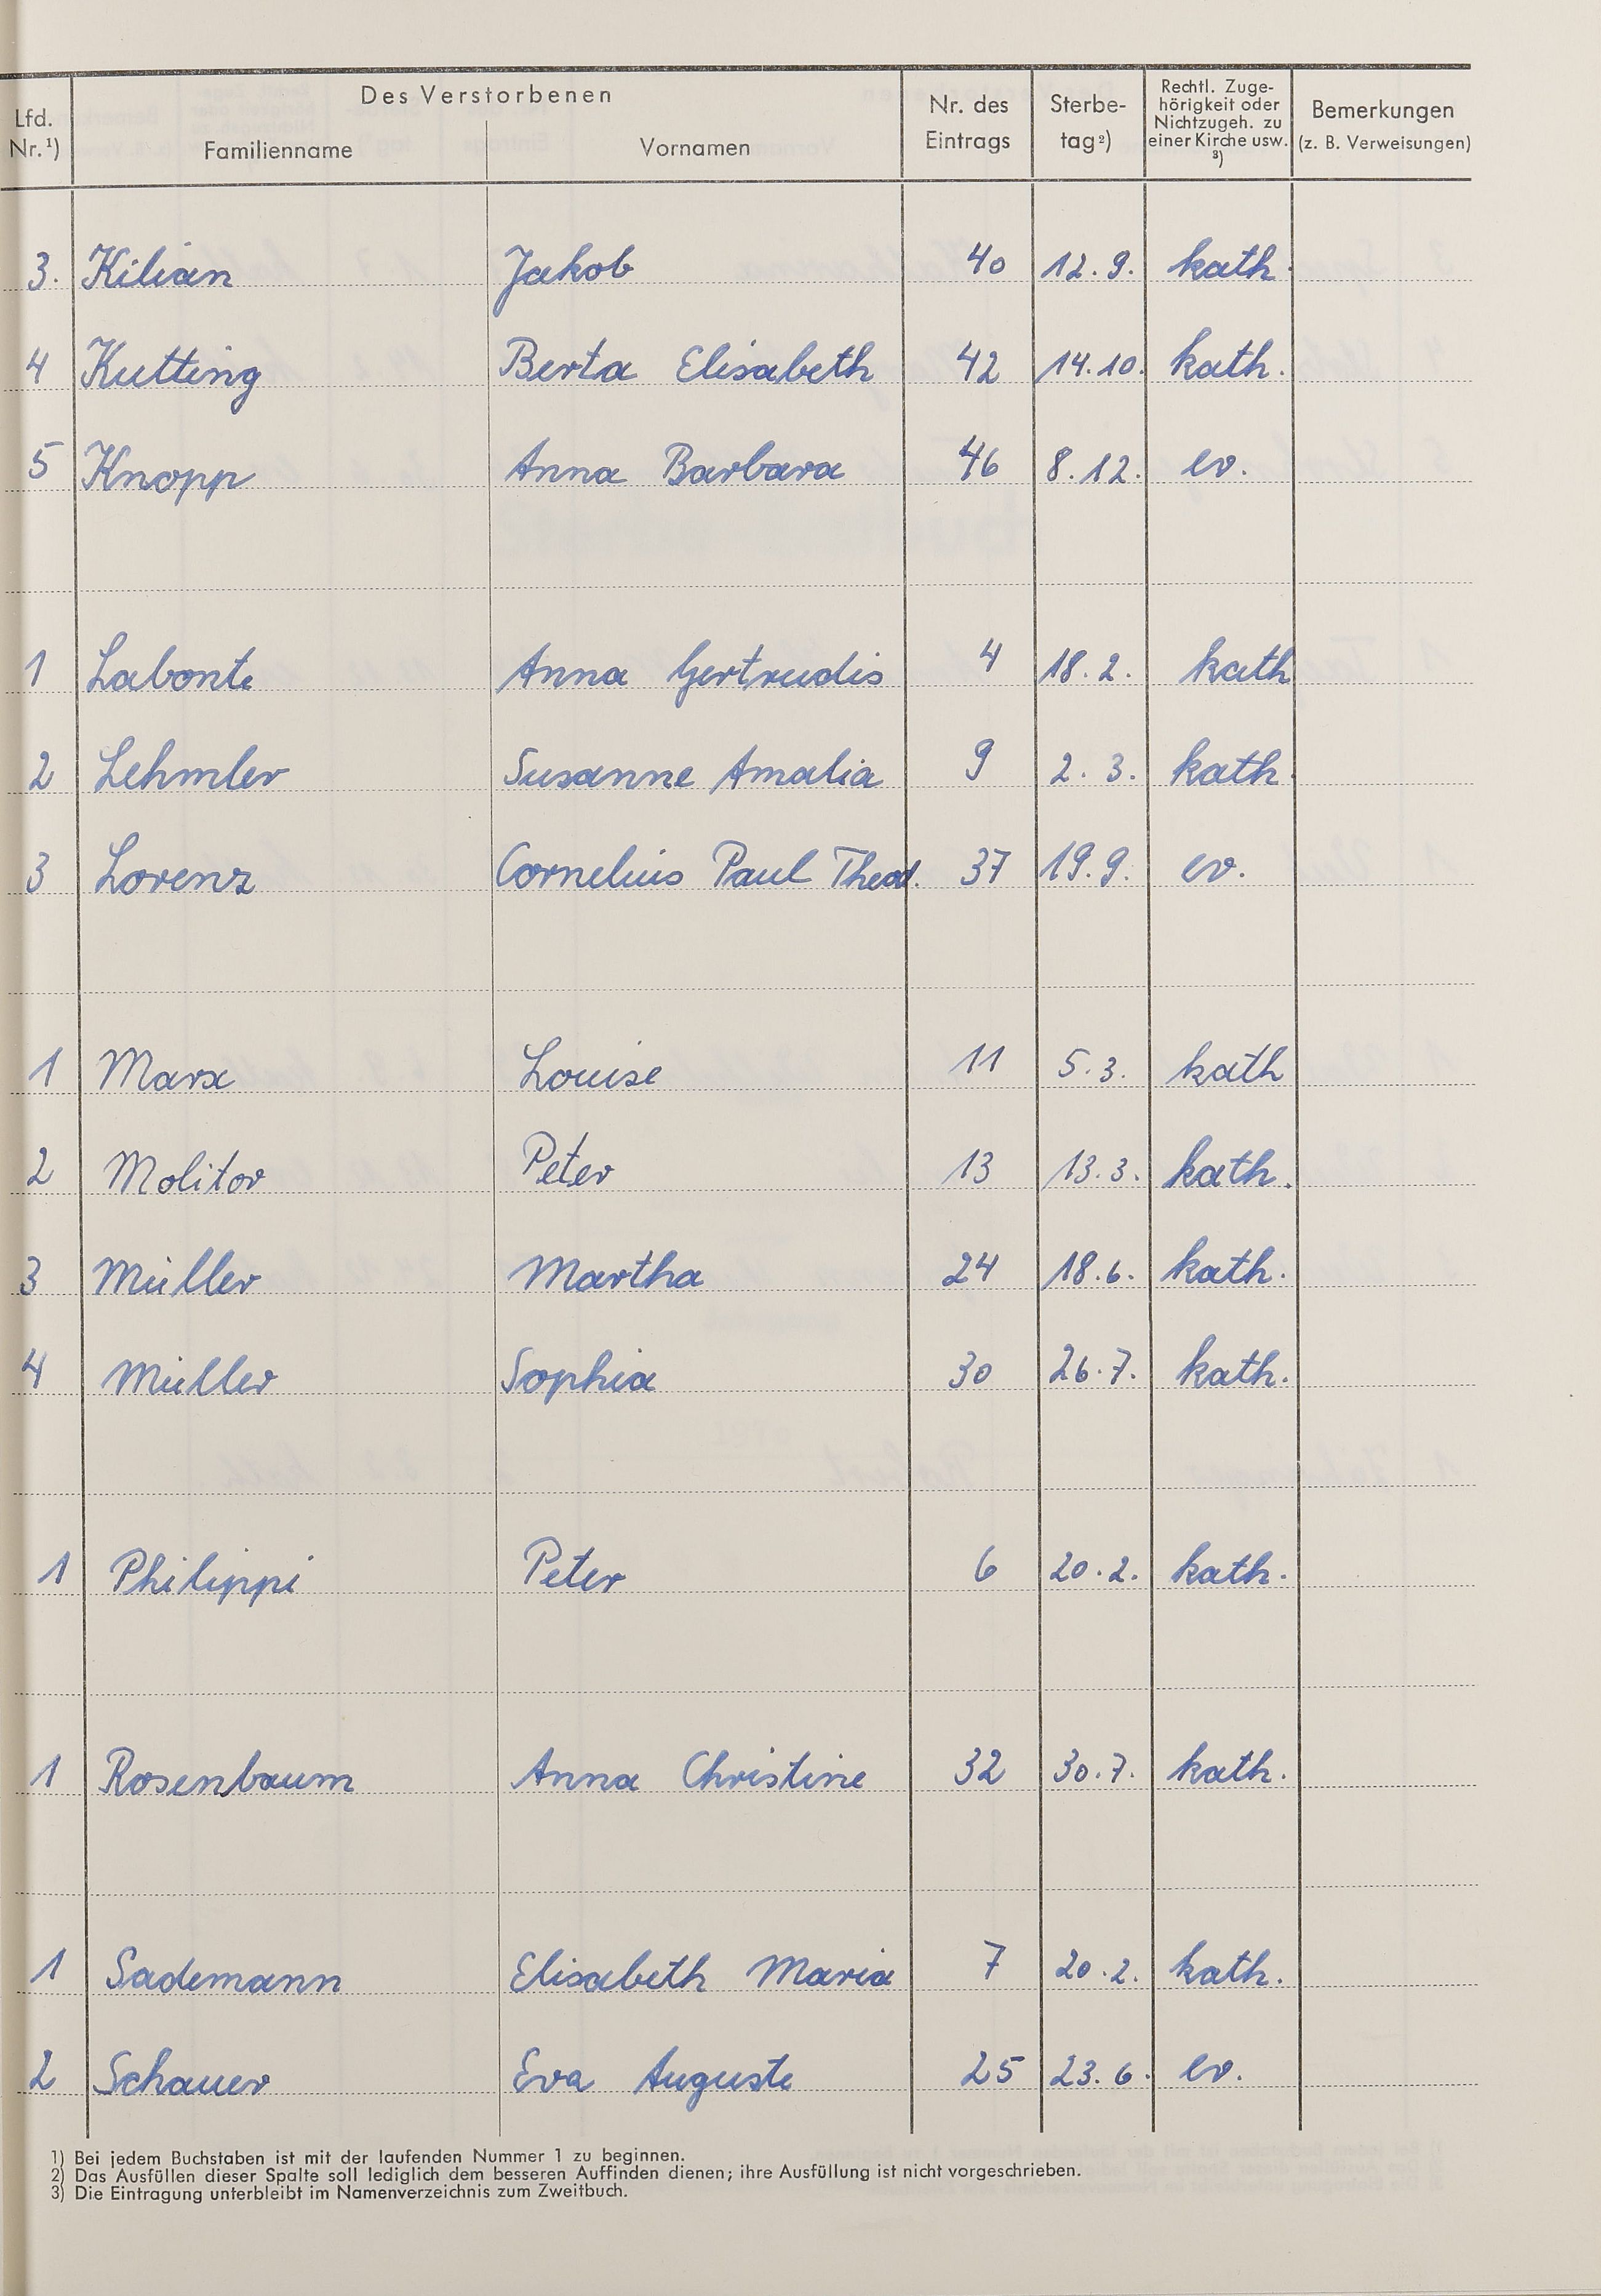 Lfd. Nr.¹)
Des Verstorbenen
Familienname
Vornamen
Nr. des Eintrags
Sterbe-tag²)
Rechtl. Zuge-
hörigkeit oder
Nichtzugeh. zu
einer Kirche usw.
³)
Bemerkungen
(z. B. Verweisungen)
3. Kilian Jakob 40 12.9. kath.
4 Kutting Berta Elisabeth 42 14.10. kath.
5 Knopp Anna Barbara 46 8.12. ev.
1 Labonte Anna Gertrudis 4 18.2. kath
2 Lehmler Susanne Amalia 9 2.3. kath.
3 Lorenz Cornelius Paul Theod. 37 19.9. ev.
1 Marx Louise 11 5.3. kath
2 Molitor Peter 13 13.3. kath.
3 Müller Martha 24 18.6. kath.
4 Müller Sophia 30 26.7. kath.
1 Philippi Peter 6 20.2. kath.
1 Rosenbaum Anna Christine 32 30.7. kath.
1 Sademann Elisabeth Maria 7 20.2. kath.
2 Schauer Eva Auguste 25 23.6. ev.
1) Bei jedem Buchstaben ist mit der laufenden Nummer 1 zu beginnen.
2) Das Ausfüllen dieser Spalte soll lediglich dem besseren Auffinden dienen; ihre Ausfüllung ist nicht vorgeschrieben.
3) Die Eintragung unterbleibt im Namenverzeichnis zum Zweitbuch.